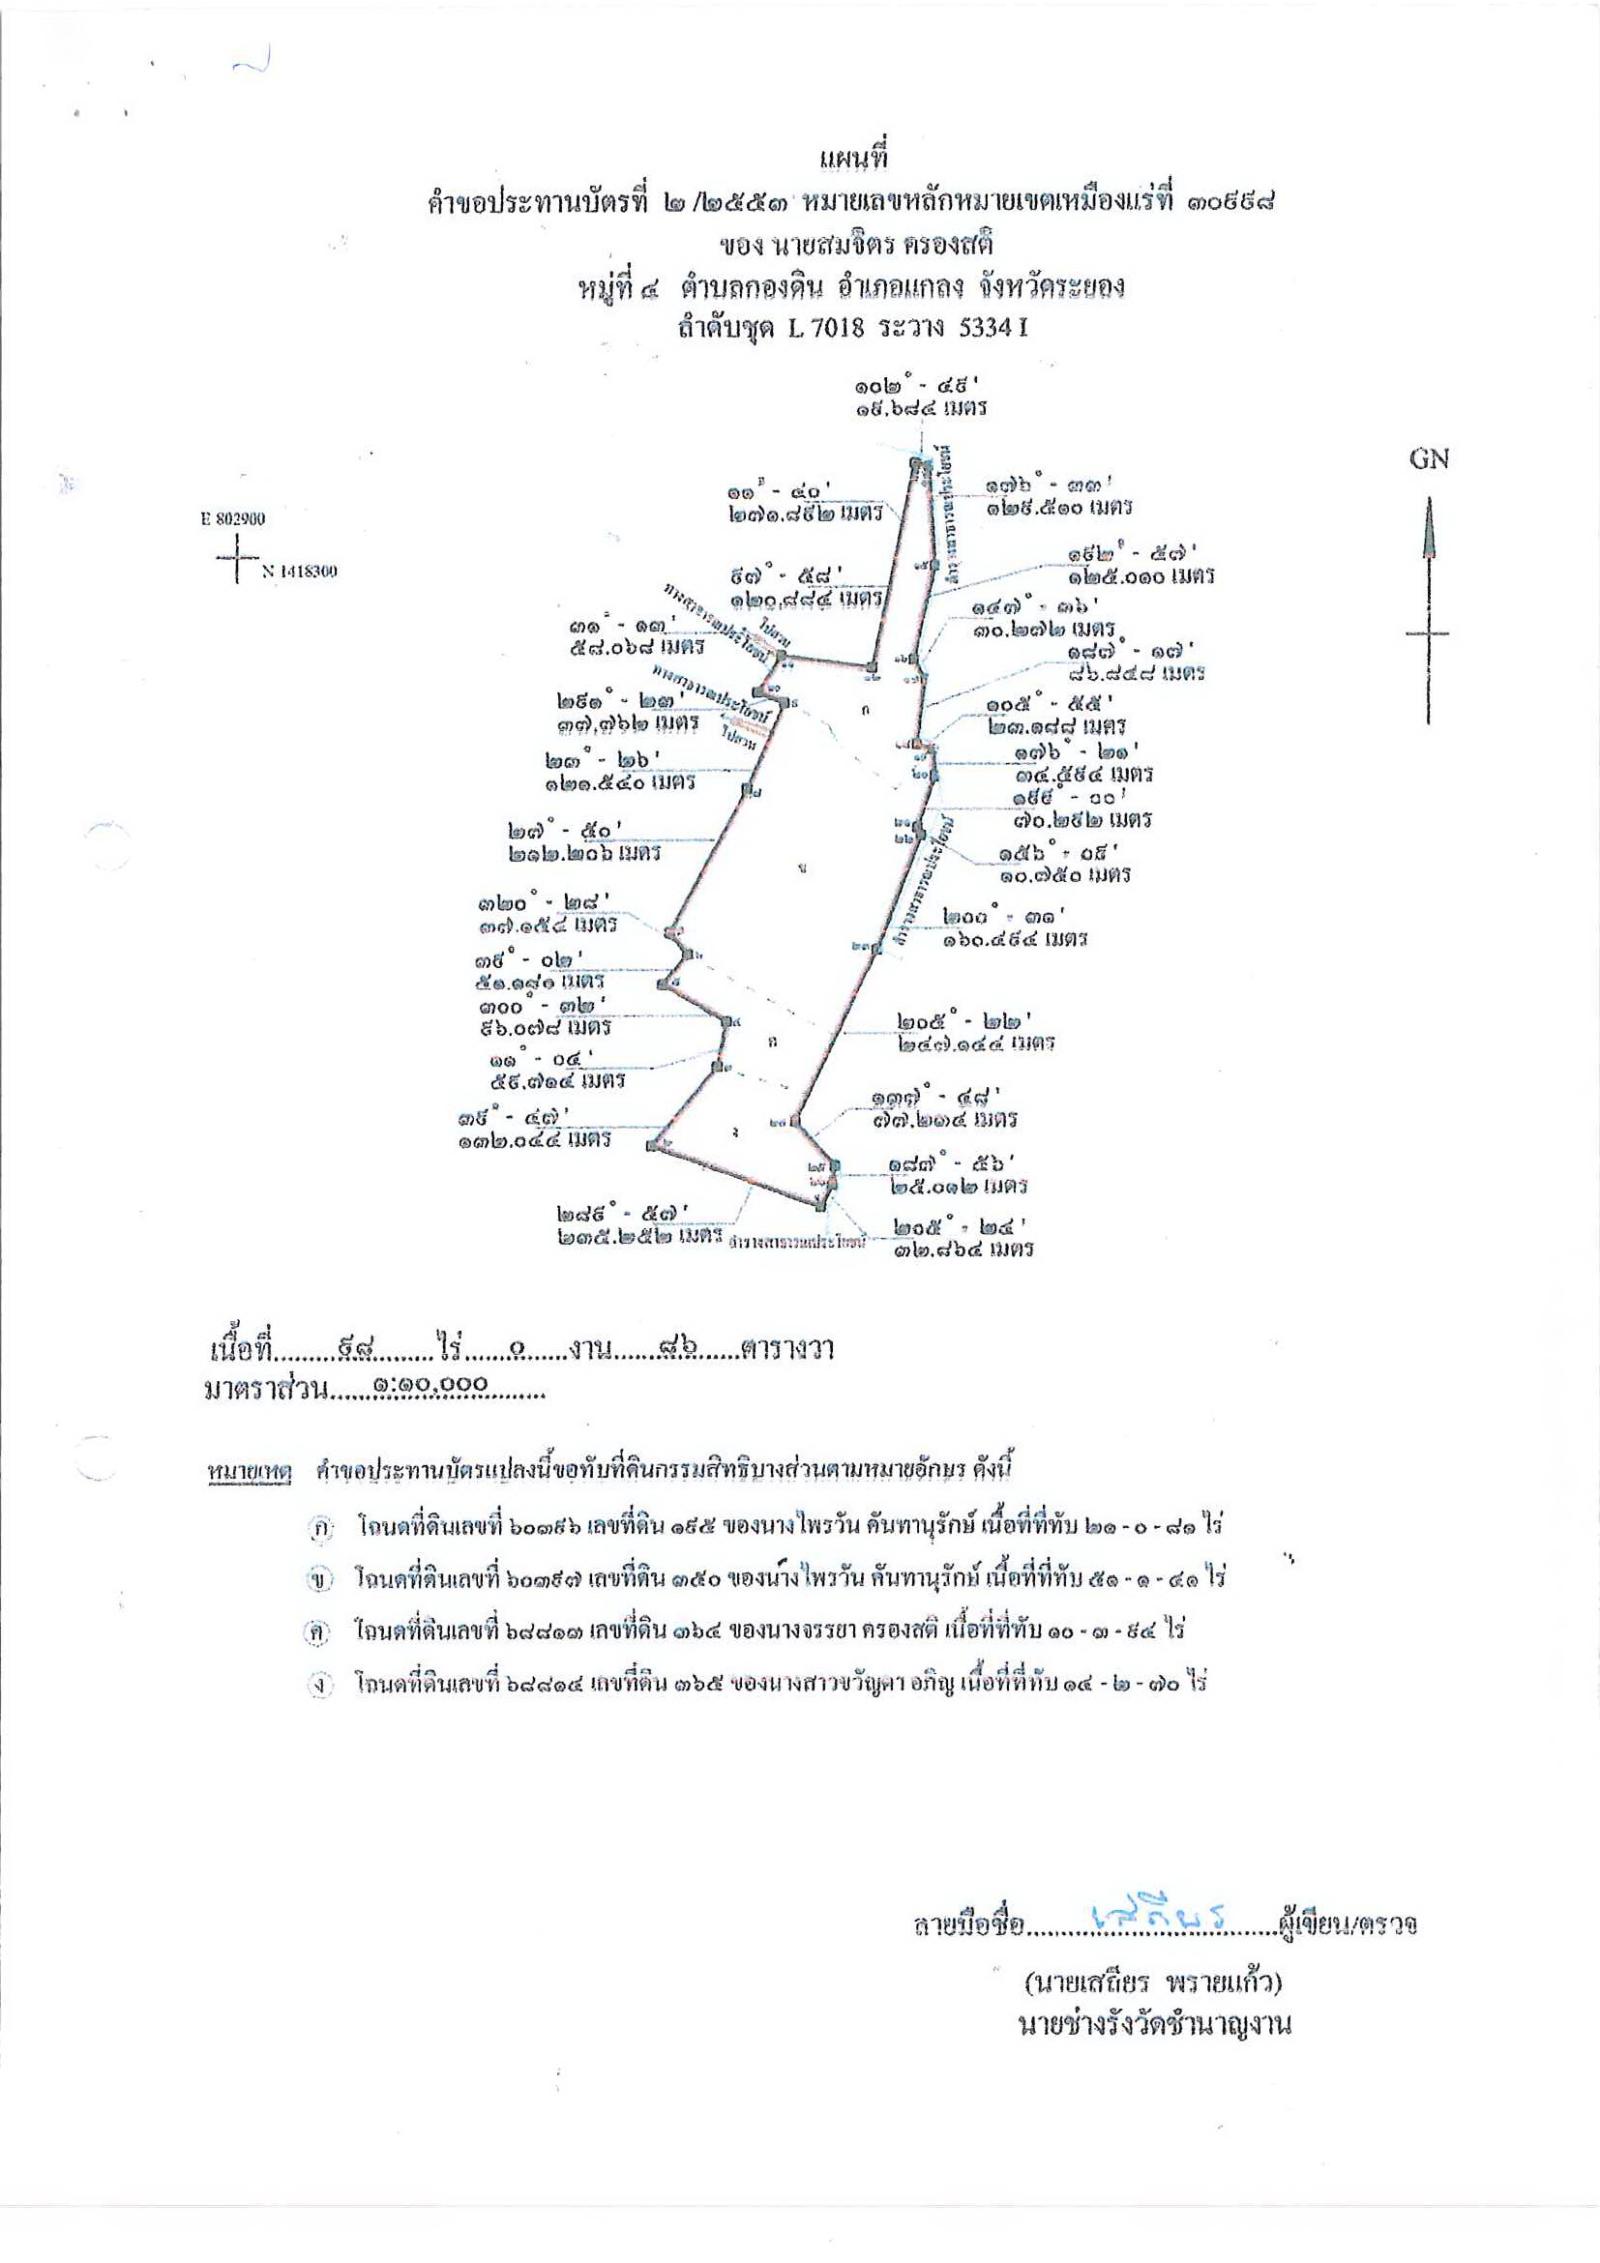 แผนที่
คำขอประทานบัตรที่ ๒/๒๕๕๓ หมายเลขหลักหมายเขตเหมืองแร่ที่ ๓๐๙๙๘
ของ นายสมจิตร ครองสติ
หมู่ที่ ๔ ตำบลกองดิน อำเภอแกลง จังหวัดระยอง
ลำดับชุด L 7018 ระวาง 5334 I
๑๐๒° - ๔๙'
๑๙.๖๘๔ เมตร
GN
E 802900
N 1418300
๑๑° - ๔๐'
๒๗๑.๘๙๒ เมตร
๑๗๖° - ๓๓'
๑๒๙.๕๑๐ เมตร
ลำรางสาธารณประโยชน์
๙๗° - ๕๘'
๑๒๐.๘๘๔ เมตร
๑๙๒° - ๕๗'
๑๒๕.๐๑๐ เมตร
ทางสาธารณประโยชน์
ไปสวน
๓๑° - ๑๓'
๕๘.๐๖๘ เมตร
๑๔๗° - ๓๖'
๓๐.๒๗๒ เมตร
๑๘๗° - ๑๗'
๘๖.๘๔๘ เมตร
ทางสาธารณประโยชน์
ไปสวน
๒๙๑° - ๒๓'
๓๗.๗๖๒ เมตร
๑๐๕° - ๕๕'
๒๓.๑๘๘ เมตร
๒๓° - ๒๖'
๑๒๑.๕๔๐ เมตร
๑๗๖° - ๒๑'
๓๔.๕๙๔ เมตร
๑๙๙° - ๐๐'
๗๐.๒๙๒ เมตร
๒๗° - ๕๐'
๒๑๒.๒๐๖ เมตร
๑๕๖° - ๐๙'
๑๐.๗๕๐ เมตร
ลำรางสาธารณประโยชน์
๓๒๐° - ๒๘'
๓๗.๑๕๔ เมตร
๒๐๐° - ๓๑'
๑๖๐.๔๙๔ เมตร
๓๙° - ๐๒'
๕๑.๑๘๑ เมตร
๓๐๐° - ๓๒'
๙๖.๐๗๘ เมตร
๒๐๕° - ๒๒'
๒๔๗.๑๔๔ เมตร
๑๑° - ๐๔'
๕๙.๗๑๔ เมตร
๓๙° - ๔๗'
๑๓๒.๐๔๔ เมตร
๑๓๗° - ๔๘'
๗๗.๒๑๔ เมตร
๑๘๗° - ๕๖'
๒๕.๐๑๒ เมตร
๒๘๙° - ๕๗'
๒๓๕.๒๕๒ เมตร
ลำรางสาธารณประโยชน์
๒๐๕° - ๒๔'
๓๒.๘๖๔ เมตร
เนื้อที่..........๙๘.........ไร่.......๐......งาน.......๘๖......ตารางวา
มาตราส่วน......๑:๑๐,๐๐๐........
หมายเหตุ คำขอประทานบัตรแปลงนี้ขอทับที่ดินกรรมสิทธิบางส่วนตามหมายอักษร ดังนี้
ก โฉนดที่ดินเลขที่ ๖๐๓๙๖ เลขที่ดิน ๑๙๕ ของนางไพรวัน คันทานุรักษ์ เนื้อที่ที่ทับ ๒๑ - ๐ - ๘๑ ไร่
ข โฉนดที่ดินเลขที่ ๖๐๓๙๗ เลขที่ดิน ๓๕๐ ของนางไพรวัน คันทานุรักษ์ เนื้อที่ที่ทับ ๕๑ - ๑ - ๔๑ ไร่
ค โฉนดที่ดินเลขที่ ๖๘๘๑๓ เลขที่ดิน ๓๖๔ ของนางจรรยา ครองสติ เนื้อที่ที่ทับ ๑๐ - ๓ - ๙๔ ไร่
ง โฉนดที่ดินเลขที่ ๖๘๘๑๔ เลขที่ดิน ๓๖๕ ของนางสาวขวัญตา อภิญ เนื้อที่ที่ทับ ๑๔ - ๒ - ๗๐ ไร่
ลายมือชื่อ......เสถียร......ผู้เขียน/ตรวจ
(นายเสถียร พรายแก้ว)
นายช่างรังวัดชำนาญงาน